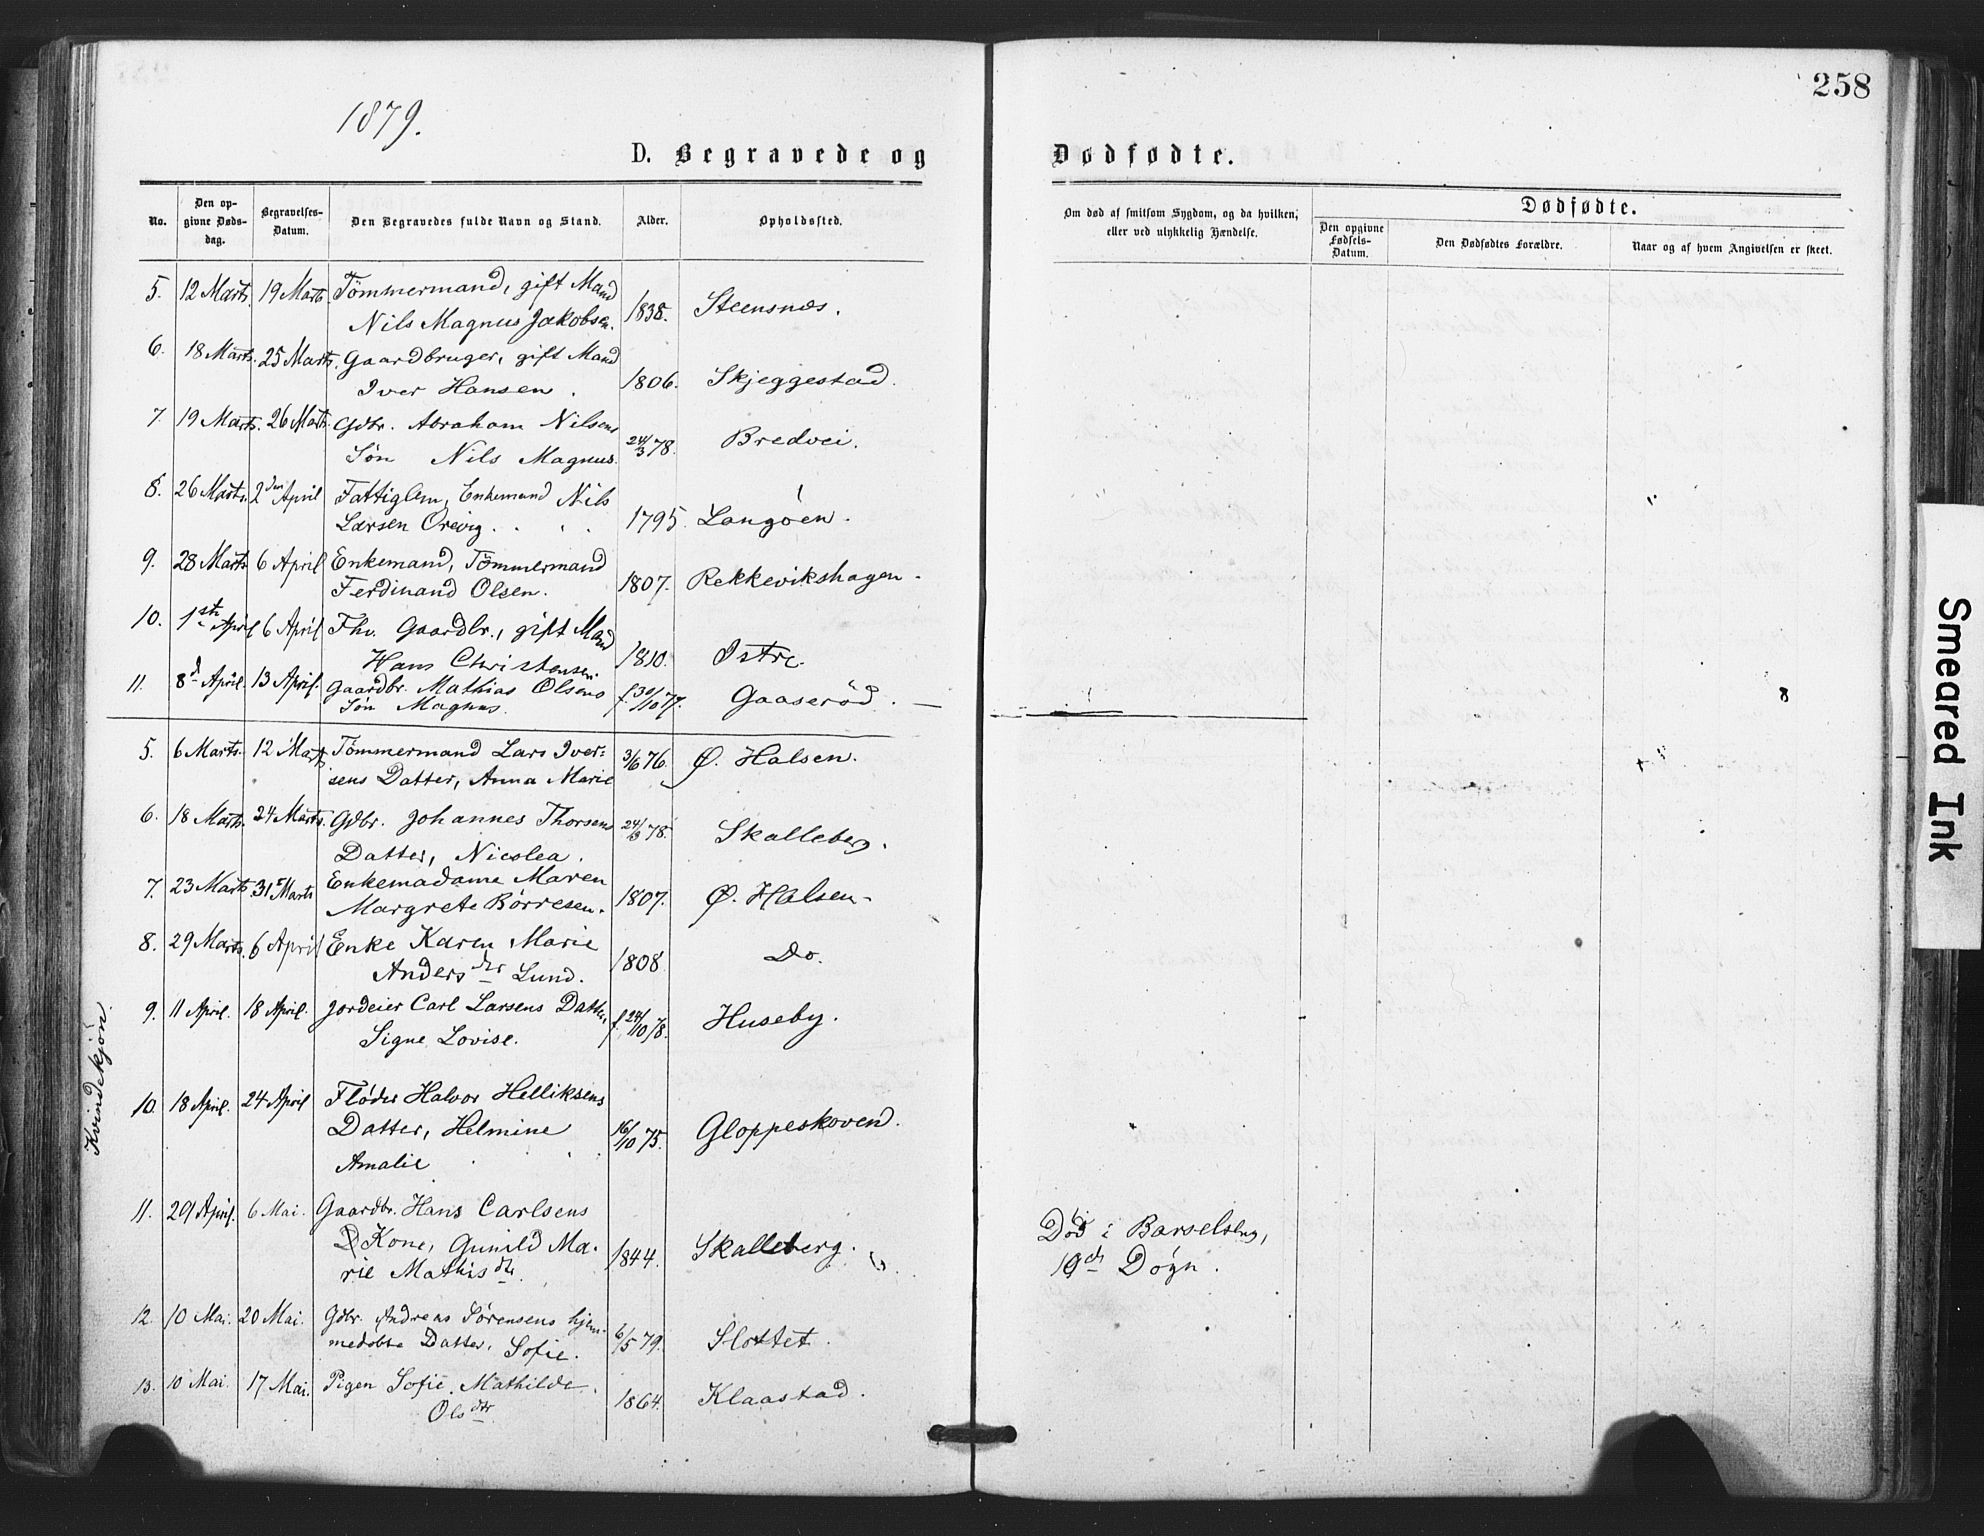 258
1879.
D. Begravede og Dødfødte.
No.
Den opgivne Dødsdag.
Begravelses-Datum.
Den Begravedes fulde Navn og Stand.
Alder.
Opholdssted.
Om død af smitsom Sygdom, og da hvilken; eller ved ulykkelig Hændelse.
Dødfødte.
Den opgivne Fødsels-Datum.
Den Dødfødtes Forældre.
Naar og af hvem Angivelsen er skeet.
5. 12 Marts. 19 Marts Tömmermand, gift Mand
Nils Magnus Jakobsen. 1838. Steensnæs.
6. 18 Marts. 25 Marts. Gaardbruger, gift Mand
Iver Hansen. 1806. Skjeggestad.
7. 19 Marts. 26 Marts. Gdbr. Abraham Nilsens
Søn Nils Magnus. 24/3 78. Bredvei.
8. 26 Marts. 2den April Fattiglem, Enkemand Nils
Larsen Orevig. 1795 Langøen.
9. 28 Marts 6 April Enkemand, Tömmermand
Ferdinand Olsen. 1807. Rekkevikshagen.
10. 1ste April 6 April Fhv. Gaardbr., gift Mand
Hans Christensen. 1810. Istre.
11. 8d April. 13 April. Gaardbr. Mathias Olsens
Søn Magnus. f. 30/10 77. Gaaserød.
Kvindekjøn
5. 6 Marts. 12 Marts Tömmermand Lars Iver-
sens Datter, Anna Marie 3/6 76. Ø. Halsen.
6. 18 Marts. 24 Marts. Gdbr. Johannes Thorsens
Datter, Nicolea. 24/3 78. Skalleberg.
7. 23 Marts. 31 Marts Enkemadame Maren
Margrete Børresen. 1807. Ø. Halsen.
8. 29 Marts. 6 April Enke Karen Marie
Andersdtr Lund. 1808 Do.
9. 11 April. 18 April. Jordeier Carl Larsens Datter,
Signe Lovise. f. 24/10 78. Huseby.
10. 18 April. 24 April Fløder Halvor Helliksens
Datter, Helmine 16/10 75. Gloppeskoven.
Amalie
11. 29 April. 6 Mai. Gaardbr. Hans Carlsens
Kone, Gunild Ma-
rie Mathisdtr. 1844. Skalleberg. Død i Barselseng,
19de Døgn.
12. 10 Mai. 20 Mai. Gdbr. Andreas Sørensens hjem-
medøbte Datter, Sofie. 6/5 79. Slottet.
13. 10 Mai. 17 Mai. Pigen Sofie Mathilde
Olsdtr. 1864. Klaastad.
Smeared Ink